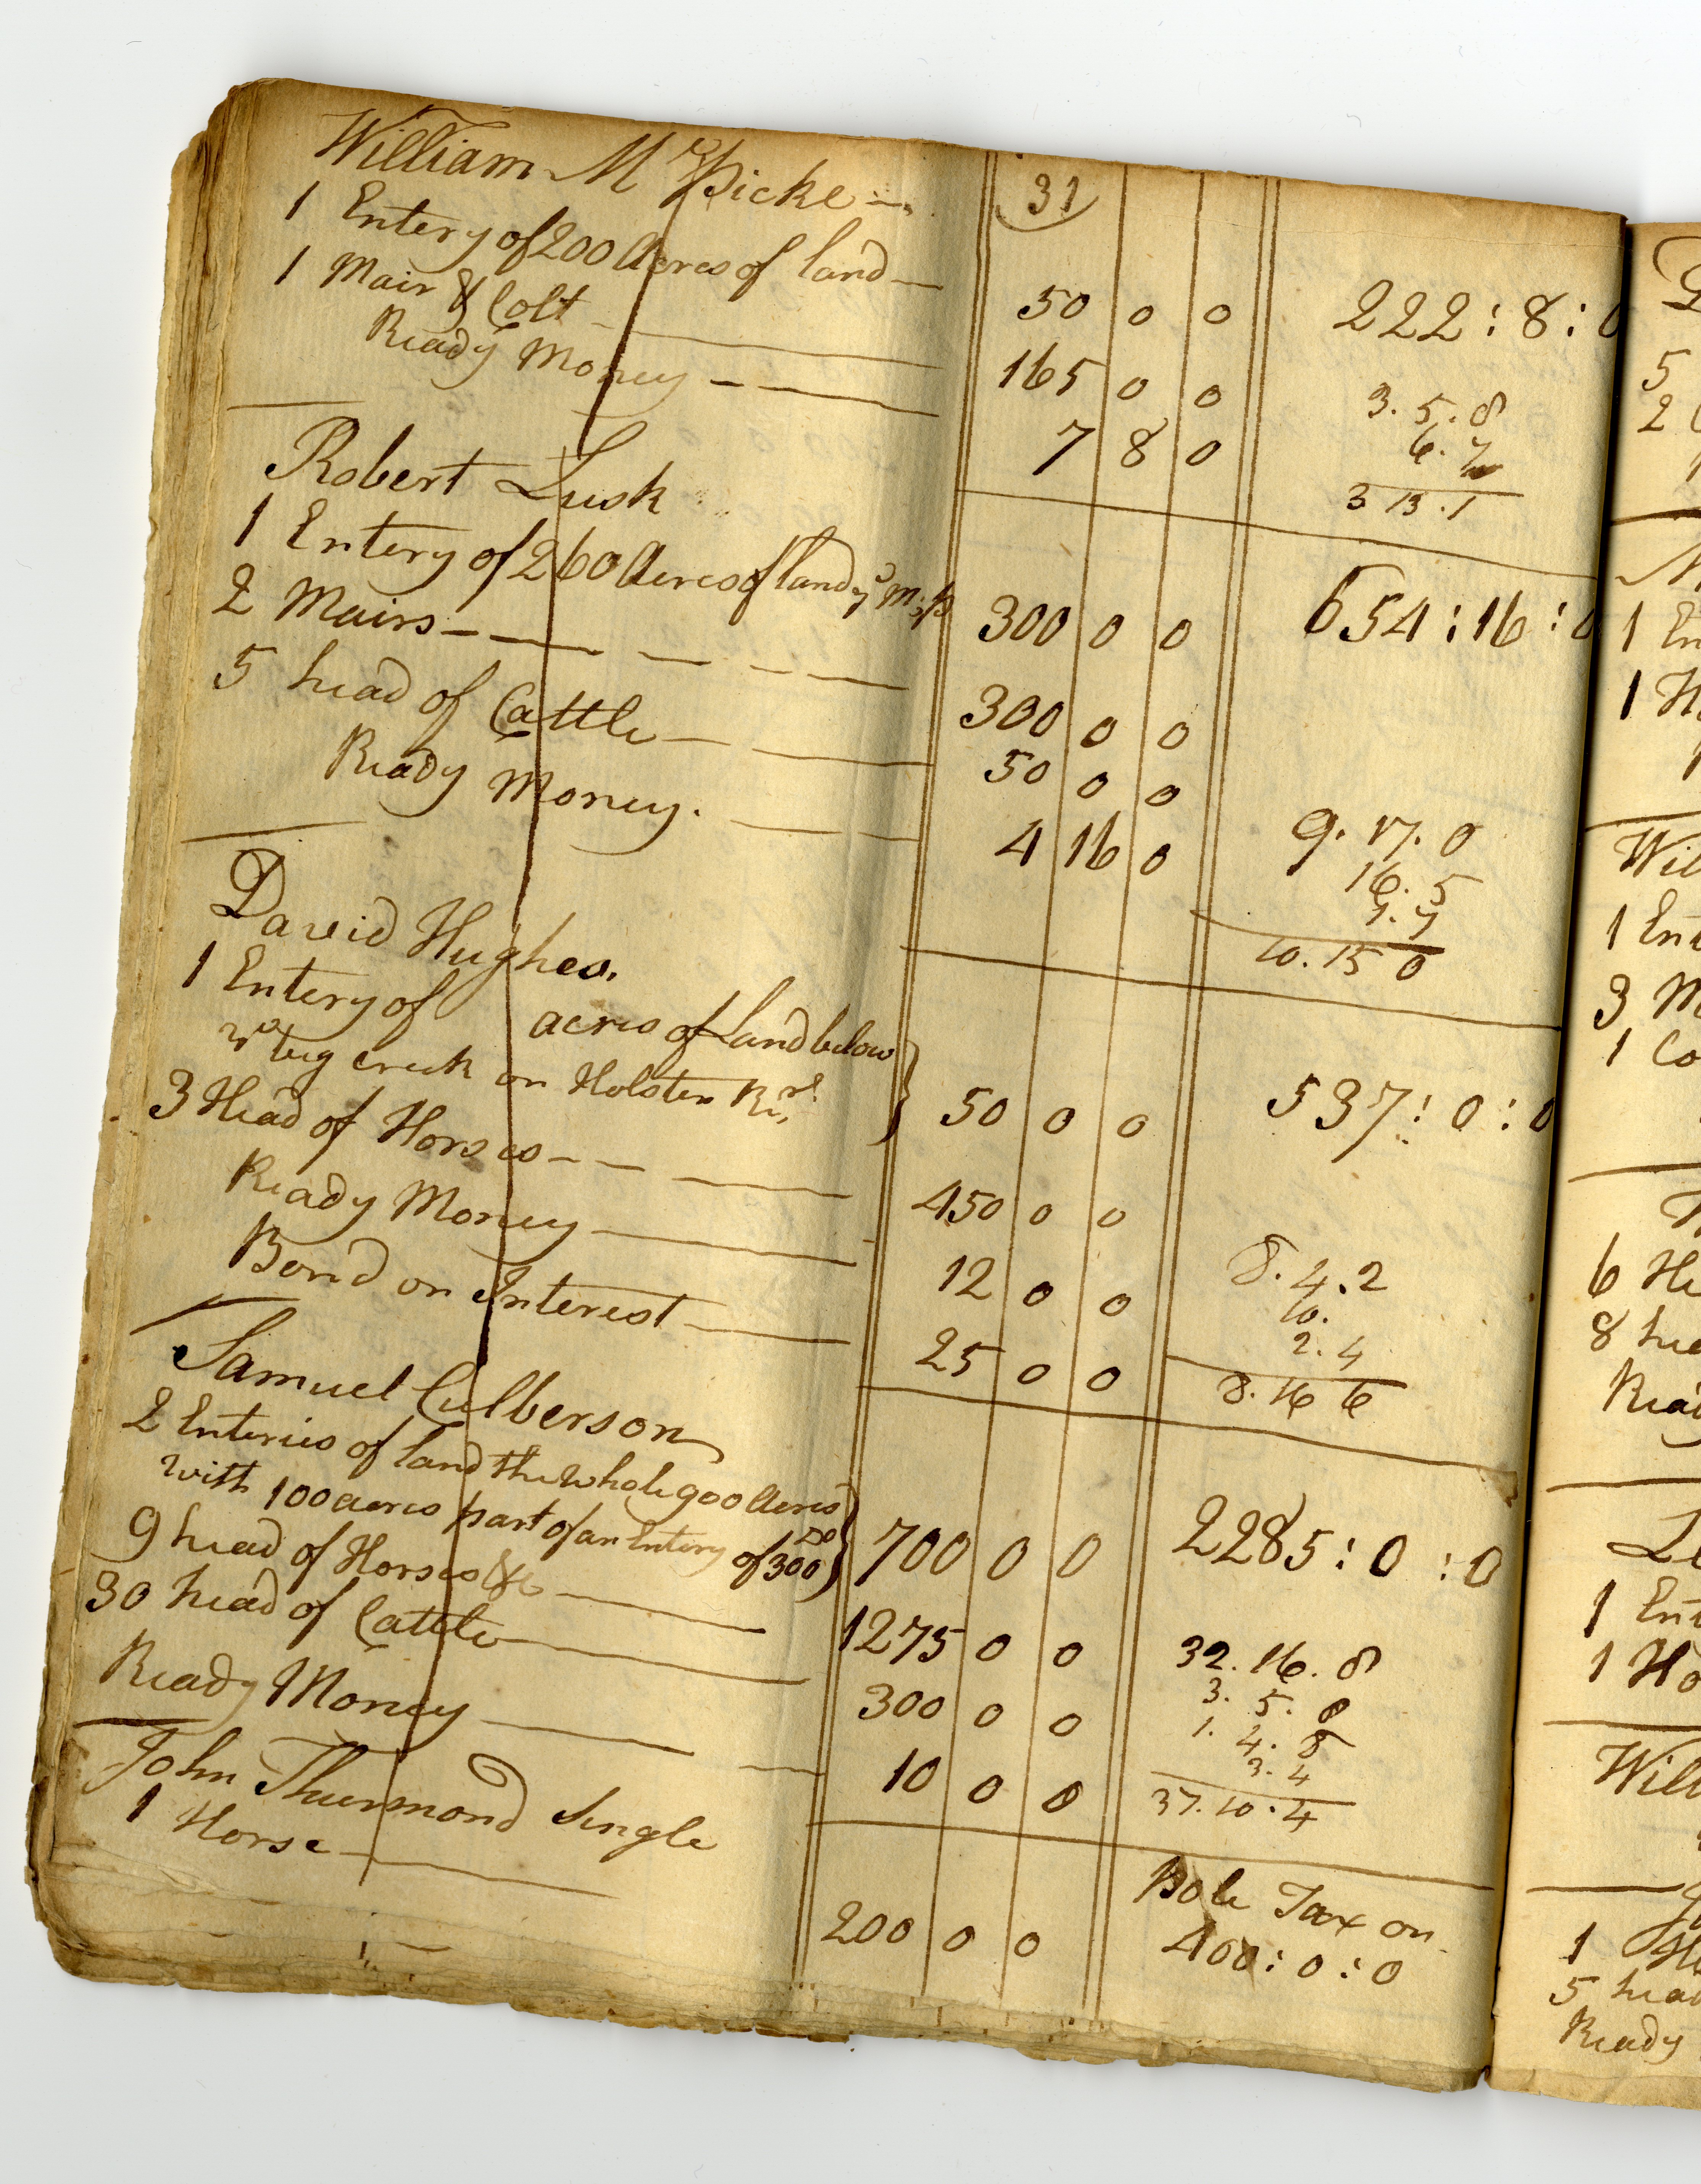 31
William Mc Spicke
1 Entery of 200 Acres of land 50 0 0 222:8:0
1 Mair & Colt 165 0 0
Ready Money 7 8 0
3. 5. 8
6. 7
3 13. 1
Robert Lusk
1 Entery of 260 Acres of land 300 0 0 654:16:0
2 Mairs 300 0 0
5 head of Cattle 50 0 0
Ready Money. 4 16 0
9. 17. 0
16. 5
1. 7
10. 15 0
David Hughes.
1 Entery of acres of Land below
creek on Holsten Rir. 50 0 0 537:0:0
3 Head of Horses 450 0 0
Ready Money 12 0 0
Bond on Interest 25 0 0
8. 4. 2
10.
2. 4
8. 16 6
Samuel Culberson
2 Enteries of land the whole 900 Acres
with 100 acres part of an Entery of 300 Do 700 0 0 2285:0:0
9 head of Horses &c 1275 0 0
30 head of Cattle 300 0 0
Ready Money 10 0 0
32. 16. 8
3. 5. 8
1. 4. 8
3. 4
37. 10. 4
John Thurmond Single
1 Horse 200 0 0
Pole Tax on
400:0:0
5
2
1 En
1 H
Wil
1 Ent
3 M
1 Co
6 He
8 hea
Read
1 Ent
1 Ho
Will
1
5 head
Ready